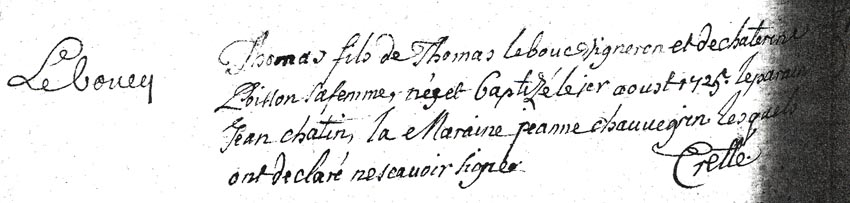 Leboucq
Thomas fils de Thomas leboucq vigneron et de chaterine
Poitton sa femme, né, et baptizé le ier aoust 1725. le parain
Jean chatin, la Maraine jeanne chauvegrin lesquels
ont declaré ne scavoir signer
Crette